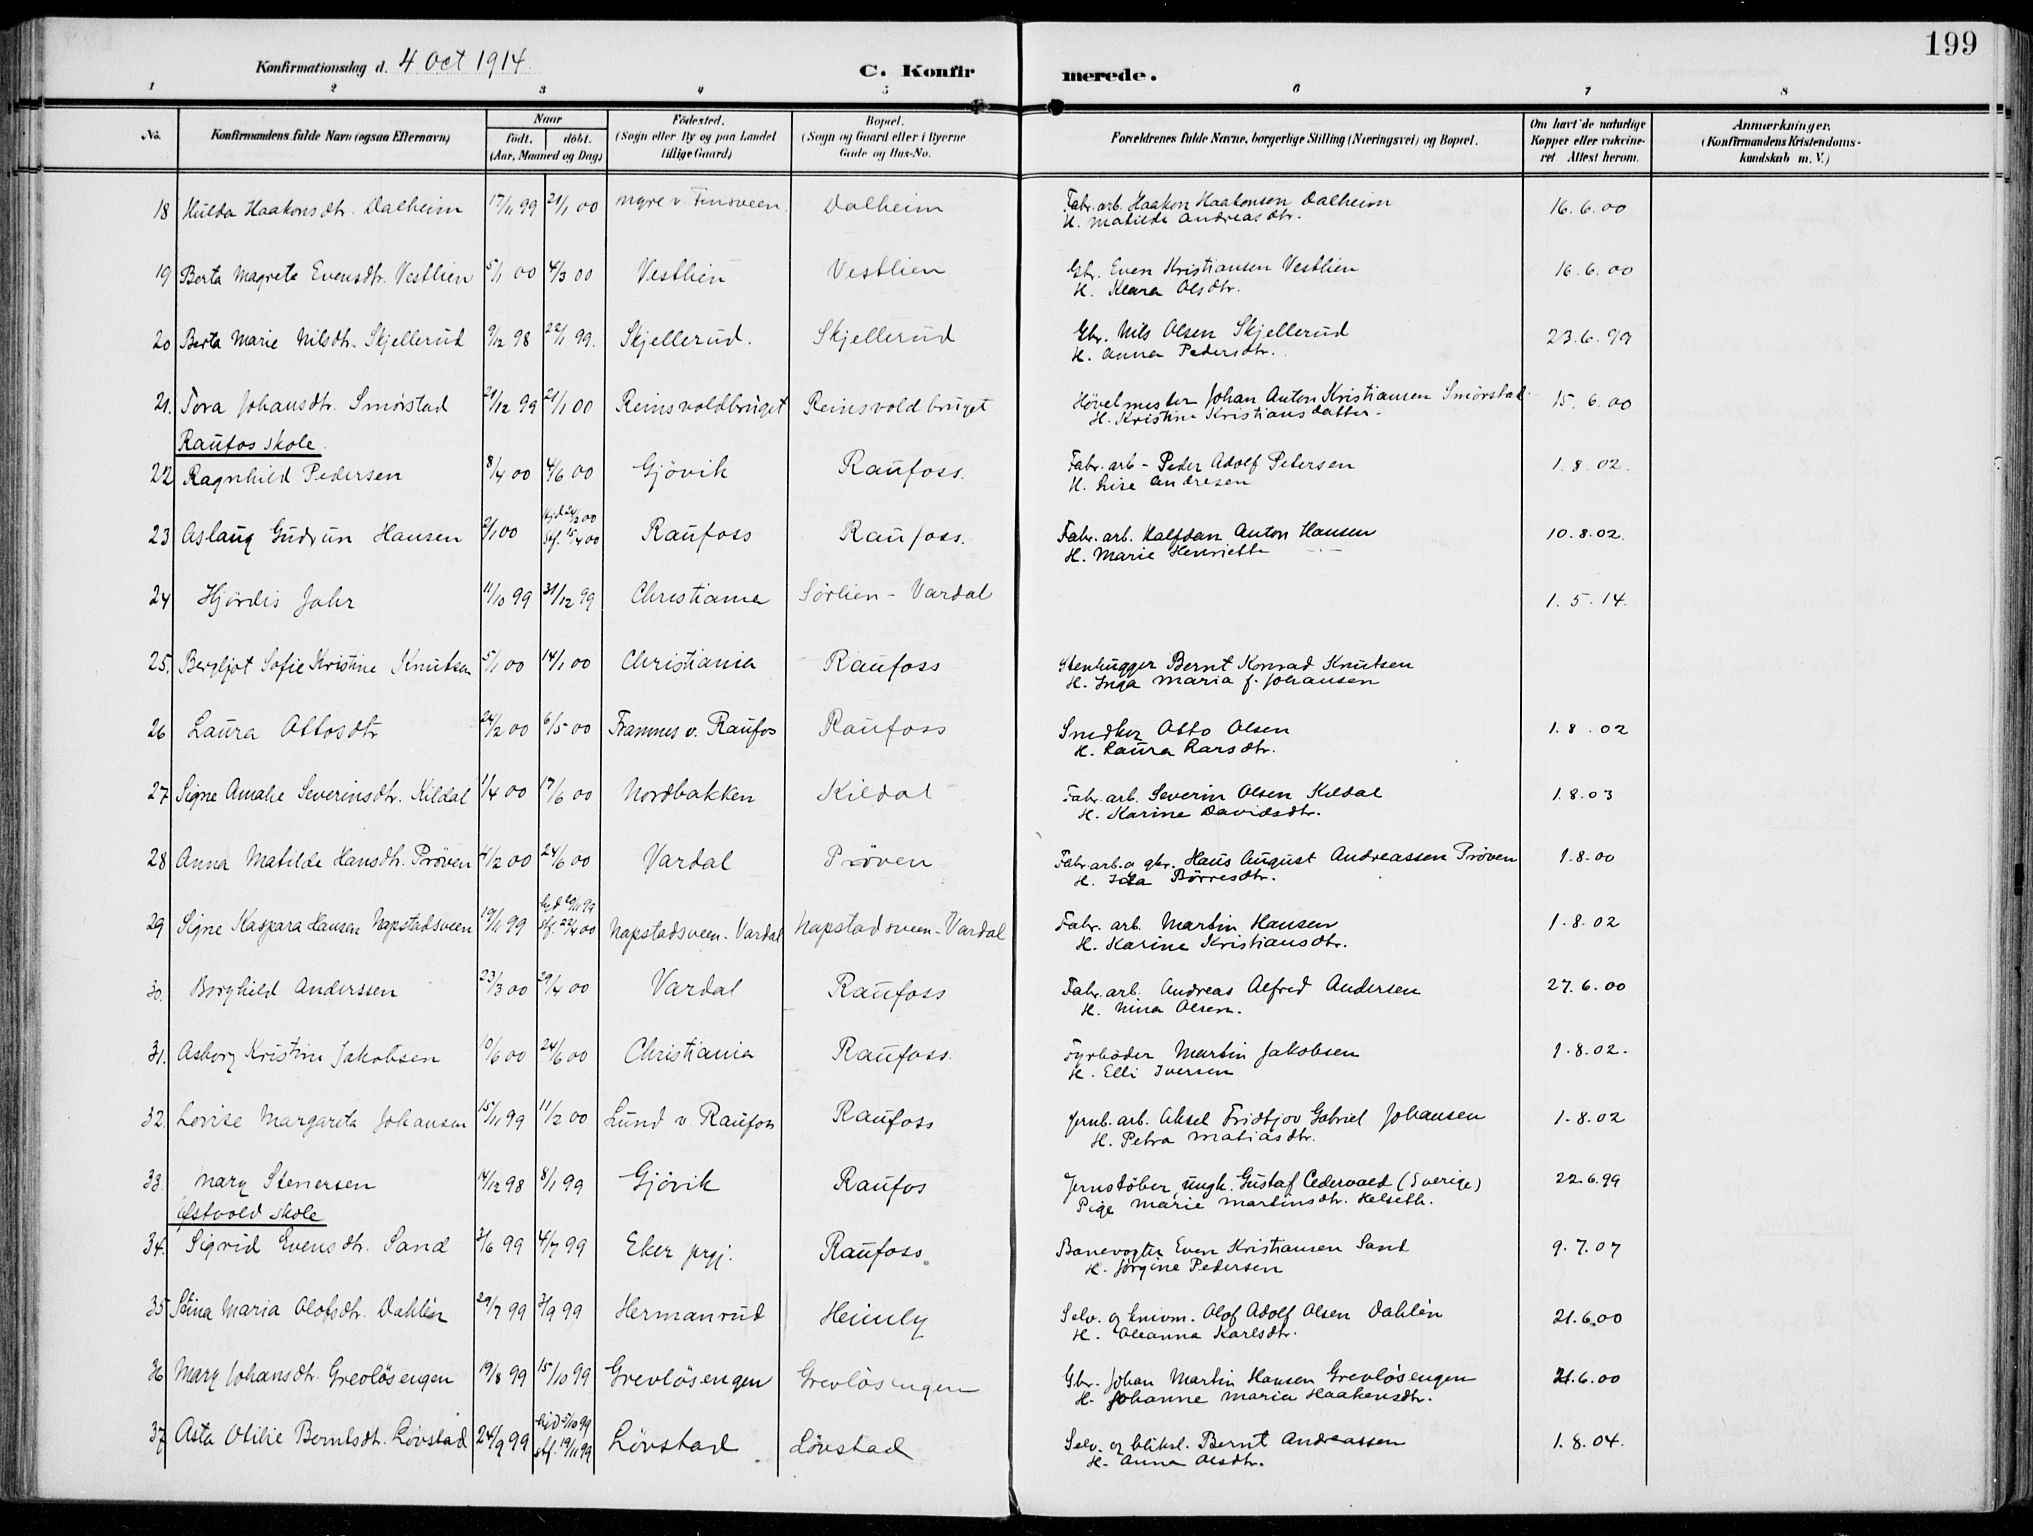 199
Konfirmationsdag d. 4 Oct 1914. C. Konfirmerede.
1 2 3 4 5 6 7 8
No. Konfirmandens fulde Navn (ogsaa Efternavn) Naar født. døbt. (Aar, Maaned og Dag) Fødested. (Sogn eller By og paa Landet tillige Gaard) Bopæl. (Sogn og Gaard eller i Byerne Gade og Hus-No. Forældrenes fulde Navne, borgerlige Stilling (Næringsvei) og Bopæl. Om havt de naturlige Kopper eller vakcineret Attest herom. Anmærkninger. (Konfirmandens Kristendomskundskab m. V.)
18 Hulda Haakonsdtr. Dalheim 17/11 99 21/1 00 Myre v. Finsveen Dalheim Fabr. arb. Haakon Haakonsen Dalheim 16.6.00
H. Matilde Andreasdtr.
19 Berta Magrete Evensdtr. Vestlien 5/1 00 4/3 00 Vestlien Vestlien Gbr. Even Kristiansen Vestlien 16.6.00
H. Klara Olsdtr.
20 Berta Marie Nilsdtr. Skjellerud 9/12 98 22/1 99. Skjellerud. Skjellerud Gbr. Nils Olsen Skjellerud 23.6.99
H. Anna Pedersdtr.
21. Tora Johansdtr. Smörstad 21/12 99 21/1 00 Reinsvoldbruget Reinsvoldbruget Hövelmester Johan Anton Kristiansen Smörstad 15.6.00
H. Kristine Kristiansdatter.
Raufos skole.
22 Ragnhild Pedersen 8/4 00 4/6 00 Gjövik Raufoss. Fabr. arb - Peder Adolf Petersen 1.8.02.
H. Lise Andresen
23 Aslaug Gudrun Hansen 2/1 00 Hjd 24/2 00 Stf. 15/4 00 Raufoss Raufoss. Fabr. arb. Halfdan Anton Hansen 10.8.02.
H. Marie Henriette
24 Hjördis Jahr 11/10 99 31/12 99 Christiania Sörlien - Vardal 1.5.14.
25. Bergljot Sofie Kristine Knutsen 5/1 00 14/1 00 Christiania Raufoss Stenhugger Bernt Konrad Knutsen
H. Inga Maria f. Johansen
26 Laura Ottosdtr 24/2 00 6/5 00 Framnes v. Raufos Raufoss Snedker Otto Olsen 1.8.02
H. Laura Larsdtr.
27 Signe Amalie Severinsdtr. Kildal 1/4 00 17/6 00 Nordbakken Kildal Fabr. arb. Severin Olsen Kildal 1.8.03
H. Karine Davidsdtr.
28 Anna Matilde Hansdtr. Pröven 4/2 00 24/6 00 Vardal Pröven Fabr. arb. o gbr. Hans August Andreassen Pröven 1.8.00
H. Ida Börresdtr.
29 Signe Kaspara Hansen Napstadsveen 19/11 99 hjd 20/11 99 stf. 22/4 00 Napstadsveen - Vardal Napstadsveen - Vardal Fabr. arb. Martin Hansen 1.8.02
H. Karine Kristiansdtr.
30. Borghild Anderssen 23/3 00 29/4 00 Vardal Raufoss Fabr. arb. Andreas Alfred Andersen 27.6.00
H. Nina Olsen.
31. Asborg Kristine Jakobsen 10/6 00 24/6 00 Christiania Raufoss. Fyrböder Martin Jakobsen 1.8.02.
H. Elli Iversen
32. Lovise Margarita Johansen 15/11 99 11/2 00 Lund v. Raufoss Raufoss Jernb. arb. Aksel Fridtjov Gabriel Johansen 1.8.02
H. Petra Matiasdtr.
33. Mary Stenersen 14/12 98 8/1 99 Gjövik Raufos Jernstöber, ungk. Gustaf Cedervald (Sverige) 22.6.99
Pige Marie Martinsdtr. Helseth.
Østvold skole
34. Sigrid Evensdtr. Sand 3/6 99 4/7 99 Eker prgj. Raufoss. Banevogter Even Kristiansen Sand 9.7.07
H. Jörgine Pedersen
35 Stina Maria Olofsdtr. Dahlén 29/7 99 3/9 99 Hermanrud Heimly Selv. og Olof Adolf Olsen Dahlén 21.6.00
H. Oleanna Karlsdtr.
36 Mary Johansdtr. Grevlösengen 19/8 99 15/10 99 Grevlösengen Grevlösengen Gbr. Johan Martin Hansen Grevlösengen 21.6.00
H. Johanne Maria Haakensdtr.
37 Asta Otilie Berntsdtr. Lövstad 24/9 99 hjd 5/10 99 stf. 19/11 99 Lövstad Lövstad Selv. og bliksl. Bernt Andreassen 1.8.04.
H. Anna Olsdtr.